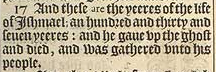 17 And these are the yeeres of the life
of Ishmael: an hundred and thirty and
seuen yeeres: and he gaue vp the ghost
and died, and was gathered vnto his
people.